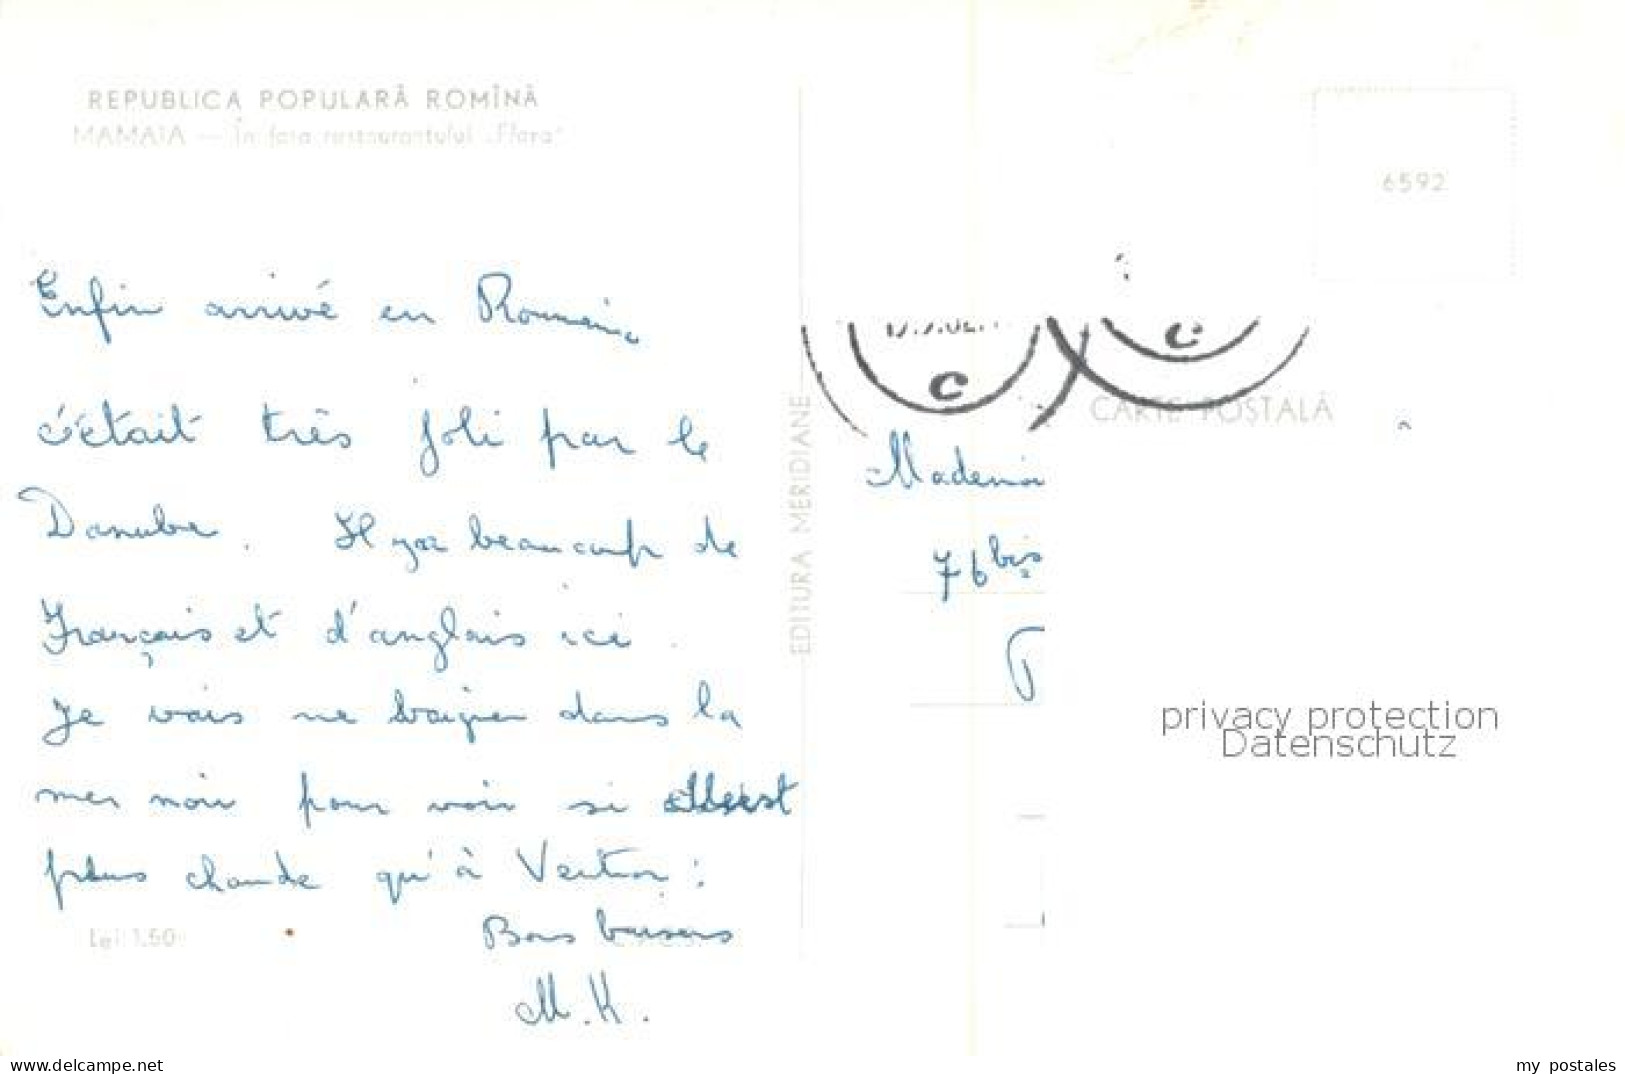 REPUBLICA POPULARĂ ROMÎNĂ
MAMAIA — În fața restaurantului „Flora"
6592
Enfin arrivé en Roumanie
c'était très joli par le
Danube. Il y a beaucoup de
Français et d'anglais ici.
Je vais me baigner dans la
mer noir pour voir si elle est
plus chaude qu'à
Bons baisers
M.K.
Lei 1,50
EDITURA MERIDIANE
C
C
CARTE POȘTALĂ
Mademoi
76 bis
privacy protection
Datenschutz
www.delcampe.net
my_postales